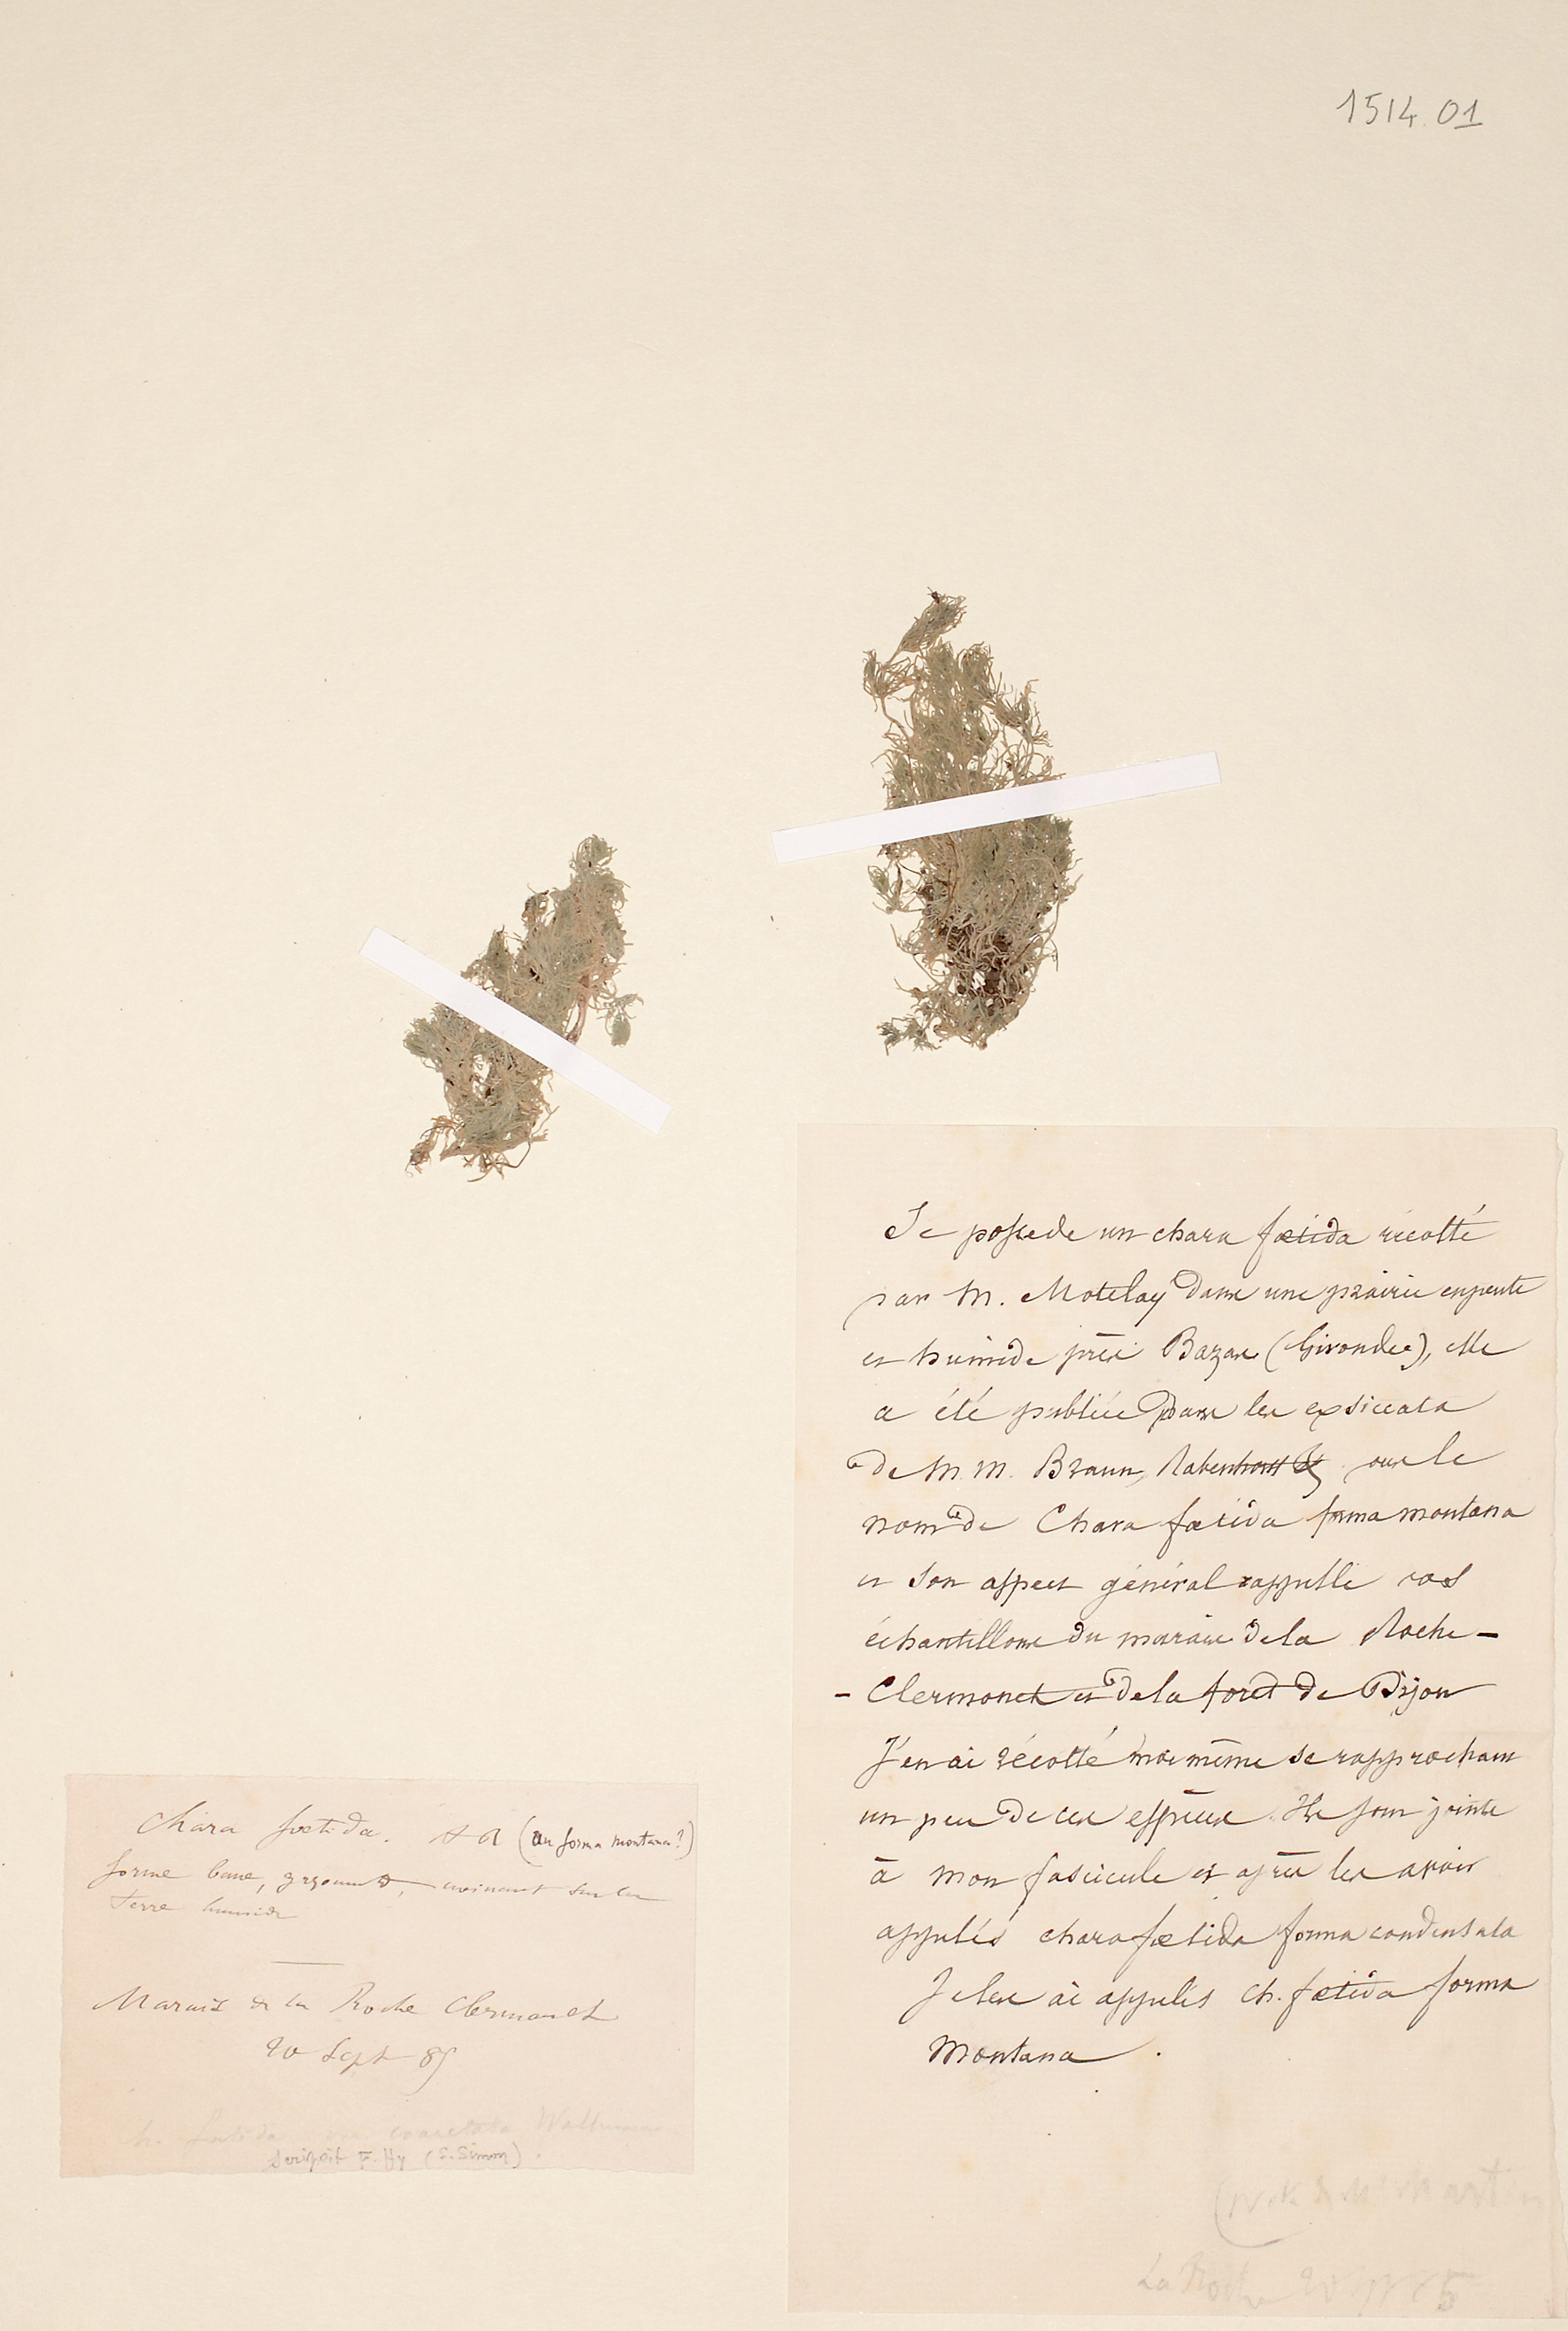 1514.01
Je possede un chara fœtida récolté
par M. Motelay dans une prairie en pente
et humide près Bazas (Gironde), elle
a été publiée dans les exsiccata
de M.M. Braun, Rabenhorst & sous le
nom de Chara fœtida forma montana
et son aspect général rappelle vos
échantillons du marais de la Roche-
-Clermonet et de la foret de Dijon
J'en ai récolté moi même se rapprochant
un peu de ces espèces. Ils sont jointe
à mon fascicule et après les avoir
appelés chara fœtida forma condensata
Je les ai appelés Ch. fœtida forma
Montana.
La Roche 20 85
Chara fœtida. (an forma montana?)
forme basse, gazonnante, croissant sur la
terre humide
Marais de la Roche Clermonet
20 Sept 85
Ch. fœtida coarctata Wallman
Scripsit F. Hy (E. Simon).